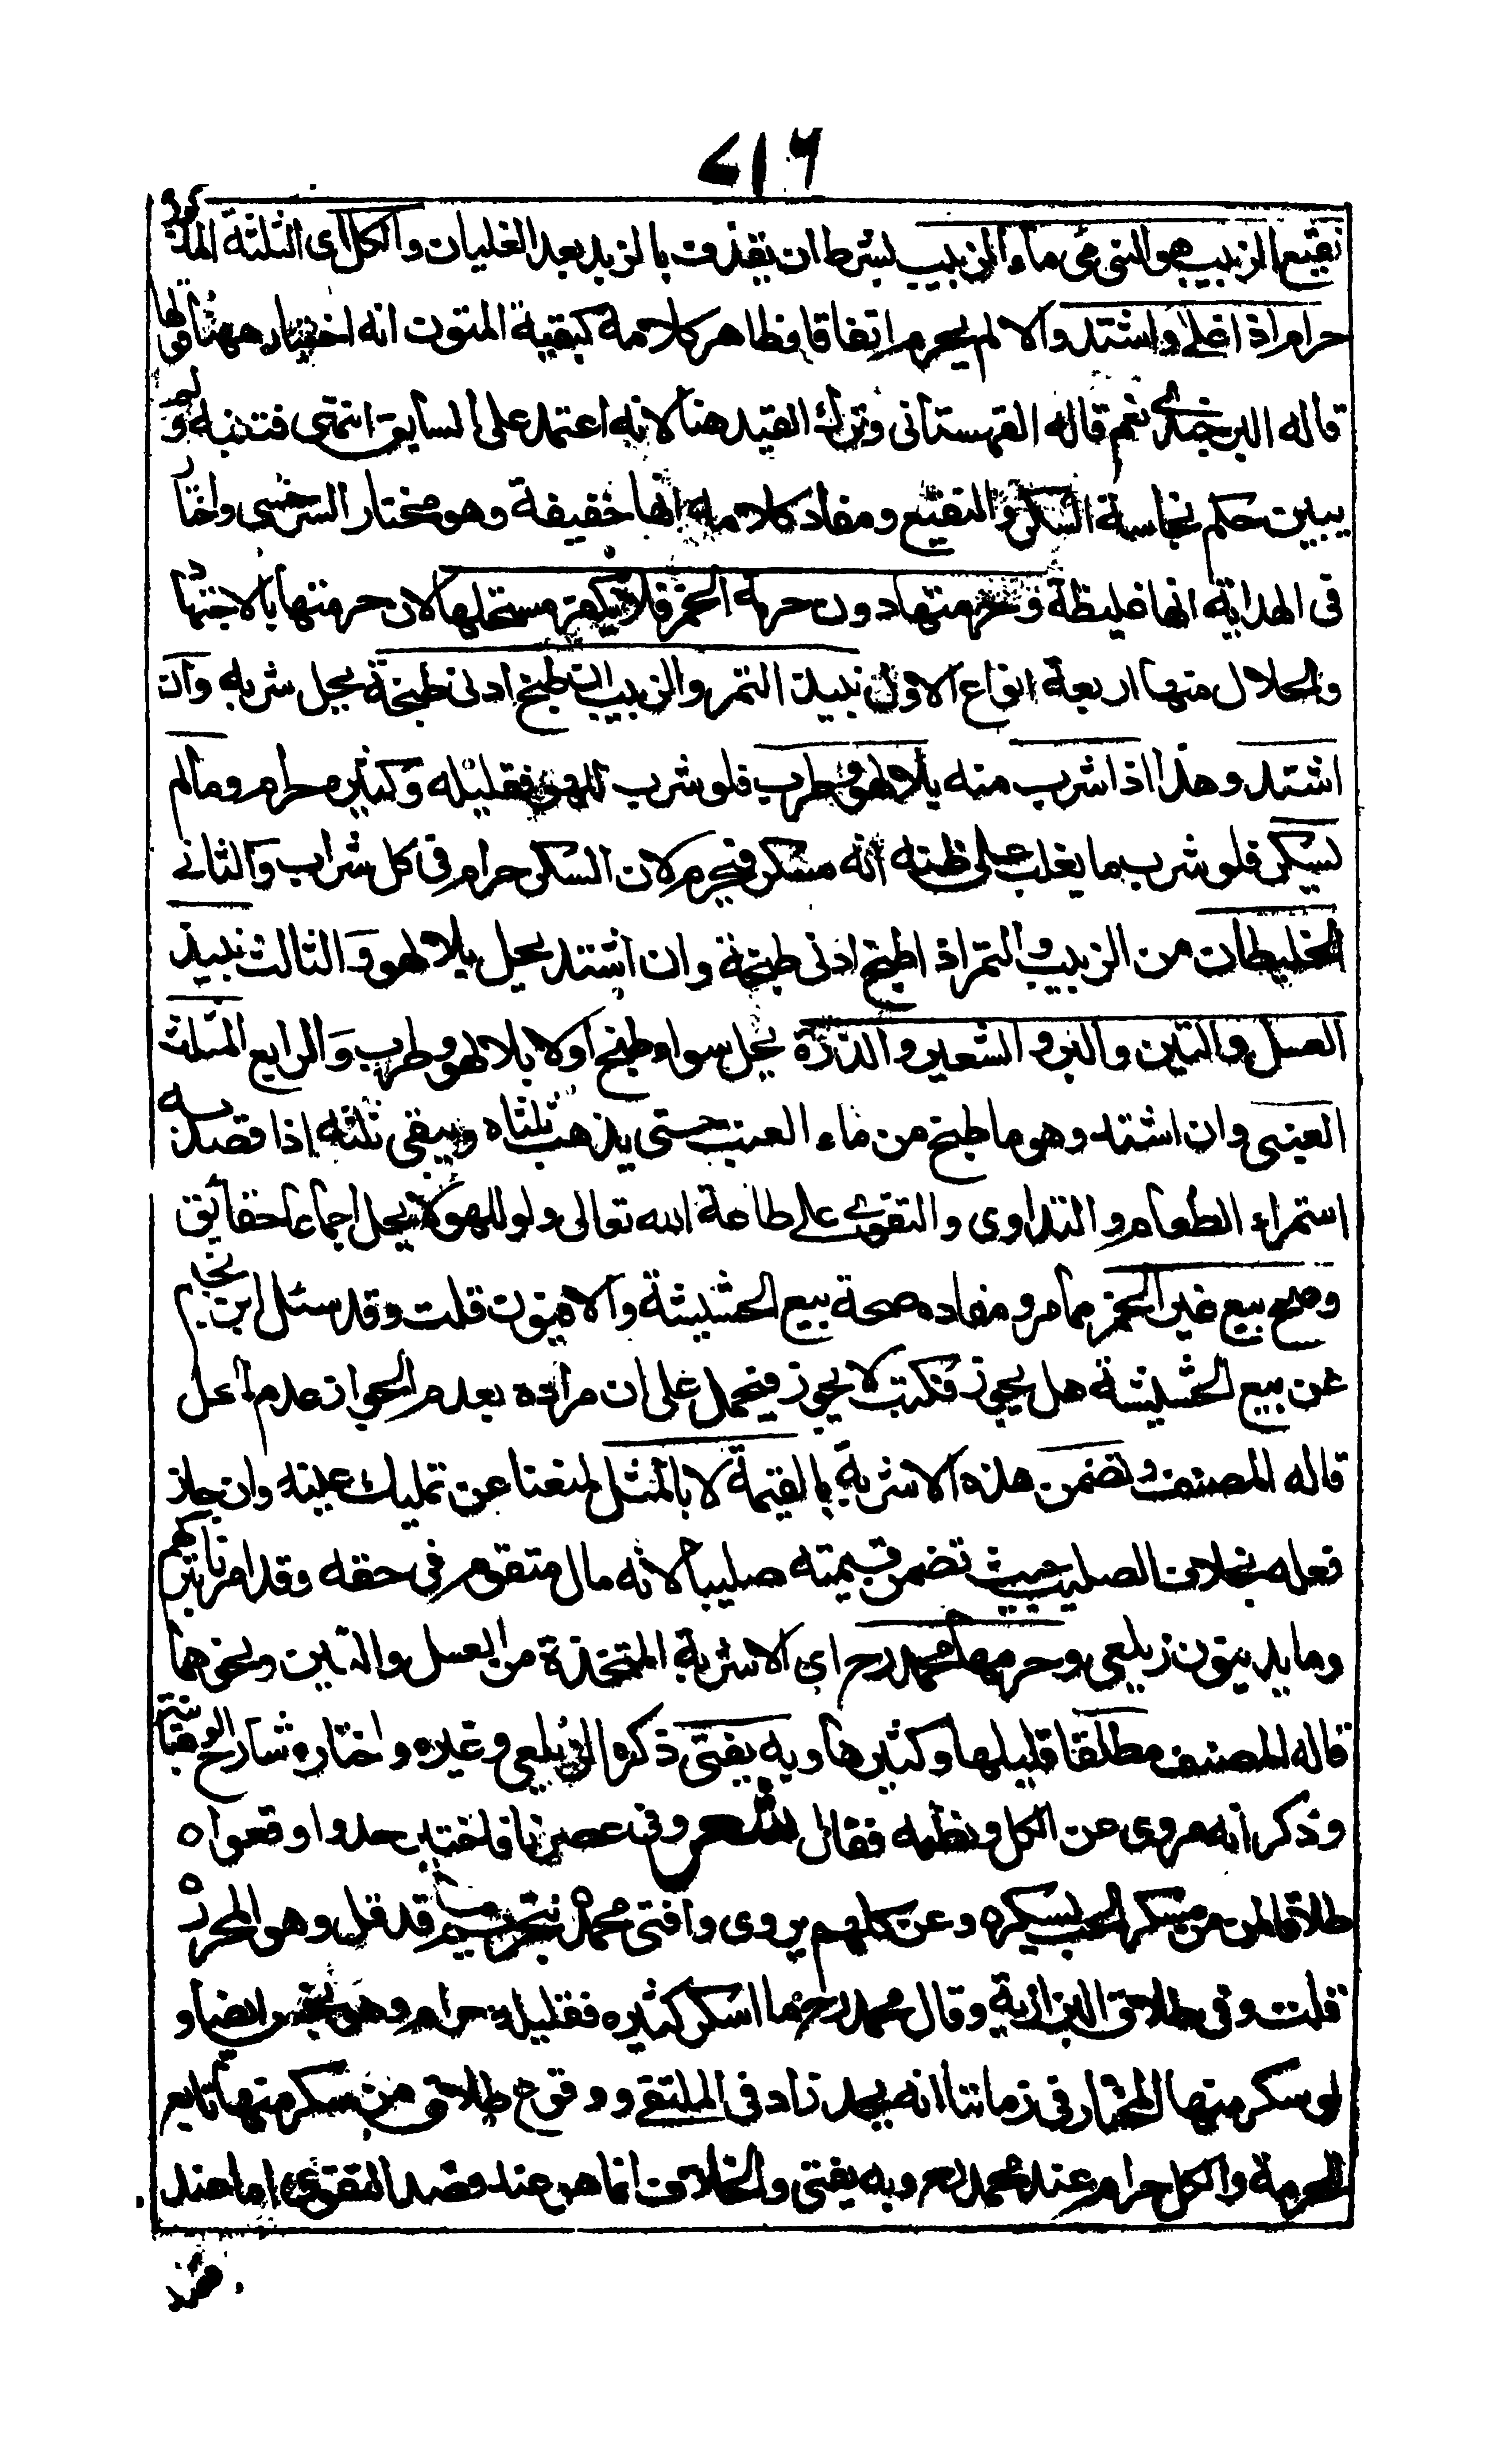 ٧١٦
نقيع الزبيب هو النى من ماء الزبيب بشرط ان يقذف بالزبد بعد الغليان والكل اى الثلثة المذكورة
حرام اذا غلى واشتد والا لم يحرم اتفاقا فظاهر كلامه كبقية المتون انه اختار ههنا قولهما
قاله البرجندى نعم قاله القهستانى وترك القيد هنا لانه اعتمد على السابق انتهى فتنبه ولم
يبين حكم نجاسة السكر والنقيع ومفاد كلامه انها خفيفة وهو مختار السرخسى واختار
فى الهداية انها غليظة وحرمتها دون حرمة الخمر فلا يكفر مستحلها لان حرمتها بالاجتهاد
والحلال منها اربعة انواع الاول نبيذ التمر والزبيب ان طبخ ادنى طبخة يحل شربه وان
اشتد وهذا اذا شرب منه بلا لهو وطرب فلو شرب للهو فقليله وكثيره حرام وما لم
يسكر فلو شرب ما يغلب على ظنه انه مسكر فيحرم لان السكر حرام فى كل شراب والثانى
الخليطان من الزبيب والتمر اذا طبخ ادنى طبخة وان اشتد يحل بلا لهو والثالث نبيذ
العسل والتين والبر والشعير والذرة يحل سواء طبخ اولا بلا لهو وطرب والرابع المثلث
العنبى وان اشتد وهو ما طبخ من ماء العنب حتى يذهب ثلثاه ويبقى ثلثه اذا قصد به
استمراء الطعام والتداوى والتقوى على طاعة الله تعالى ولو للهو لا يحل اجماعا حقائق
وصح بيع غير الخمر مما مر ومفاده صحة بيع الحشيشة والافيون قلت وقد سئل ابن نجيم
عن بيع الحشيشة هل يجوز فكتب لا يجوز فيحمل على ان مراده بعدم الجواز عدم الحل
قاله المصنف وتضمن هذه الاشربة بالقيمة لا بالمثل لمنعنا عن تمليك عينه وان جاز
فعله بخلاف الصليب حيث تضمن قيمته صليبا لانه مال متقوم فى حقه وقد امرنا بتركهم
وما يدينون زيلعى وحرمها محمد رح اى الاشربة المتخذة من العسل والتين ونحوهما
قاله المصنف مطلقا قليلها وكثيرها وبه يفتى ذكره الزيلعى وغيره واختاره شارح الوهبانية
وذكر انه مروى عن الكل ونظمه فقال شعر وفى عصرنا فاختير حد واوقعوا ٥
طلاقا لمن من مسكر الحب يسكر ٥ وعن كلهم يروى وافتى محمد ٥ بتحريم ما قد قل وهو المحرر ٥
قلت وفى طلاق البزازية وقال محمد رح ما اسكر كثيره فقليله حرام وهو نجس ايضا و
لو سكر منها المختار فى زماننا انه يحد زاد فى الملتقى ووقوع طلاق من سكر منها تابع
للحرمة والكل حرام عند محمد رح وبه يفتى والخلاف انما هو عند قصد التقوى اما عند